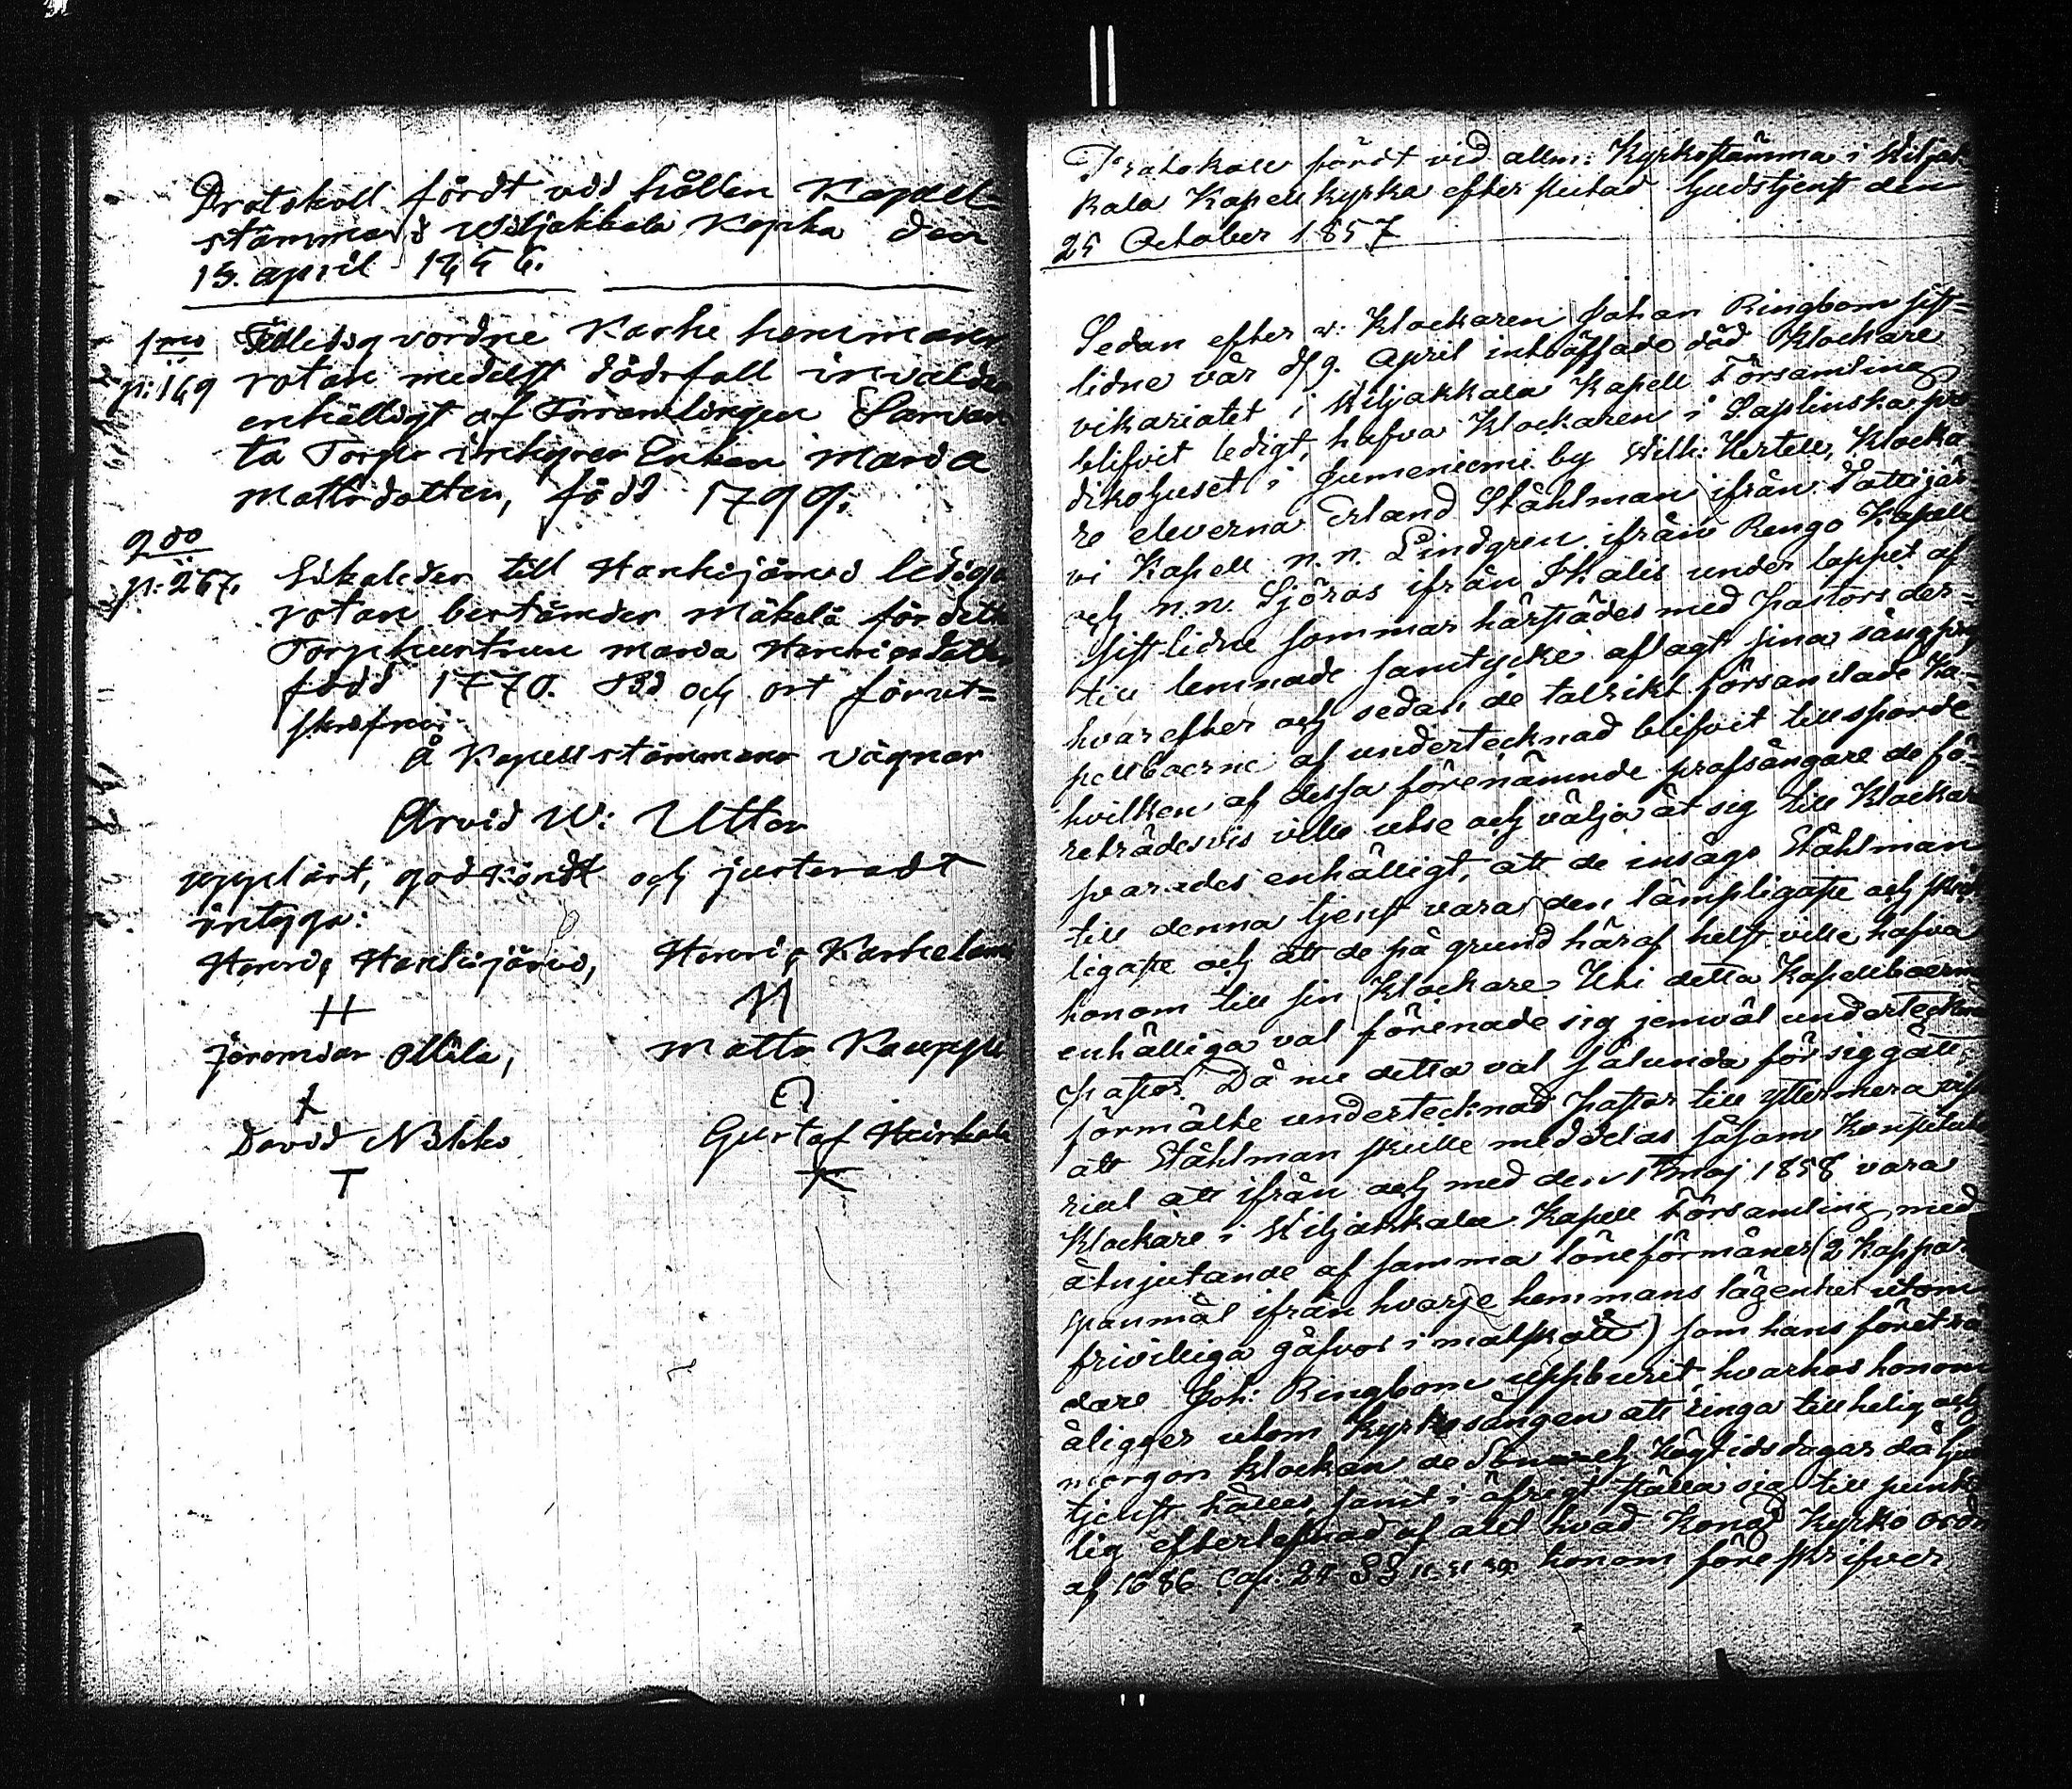 Protokoll fördt vid hållen Kapell-
stämma i Wiljakkala Kyrka den
13. april 1856.
1mo Till ledig vordne Karhe hemmans
p: 169 rotan medelst dödsfall invaldes
enhälligt af Församlingen
ta Torp inhyses Enkan Maria
Mattsdotter, född 1799.
2do
p. 267. Likaledes till Hanhijärvi lediga
rotan bestämdes Mäkelä för detta
Torphustrun Maria Henricsdotter
född 1770. Tid och ort förut=
skrefne.
Å Kapellstämmans vägnar
Arvid W: Utter
uppläst, godkändt och justeradt
intyga:
Henric Hanhijärvi, Henric Karhe
H M
Jeremias Ollila, Matts Kauppi
David Nikko Gustaf
T
Protokoll fördt vid allm: Kyrkostämma i Wiljak
kala Kapell kyrka efter slutad Gudstjenst den
25 October 1857
Sedan efter v: Klockaren Johan Ringbom sist=
lidne vår d. 9. April inträffade död Klockare
vikariatet i Wiljakkala Kapell Församling
blifvit ledigt, hafva Klockaren i Saplinska pre
dikohuset i Jumeniemi by Wilh: Hertell, Klocka
re eleverna Erland Ståhlman ifrån Pattijär
vi Kapell n.n. Lindgren ifrån Rengo Kapell
och n.n. Sjöros ifrån Ikalis under loppet af
sistlidne sommar härstädes med Pastors der=
till lemnade samtycke aflagt sina sångprof
hvarefter och sedan de talrikt församlade Ka=
pellboerne af undertecknad blifvit tillsporde
hvilken af dessa förenämnde profsångare de fö=
reträdesvis ville utse och välja åt sig till Klockar
svarades enhälligt, att de insågo Ståhlman
till denna tjenst vara den lämpligaste och skick
ligaste och att de på grund häraf helst ville hafva
honom till sin Klockare Uti detta Kapellboerne
enhälliga val förenade sig jemväl undertecknad
Pastor. Då nu detta val sålunda försiggått,
förmälte undertecknad Pastor till yttermera viss
att Ståhlman skulle meddelas såsom Konstitu
rial att ifrån och med den 1 maj 1858 vara
Klockare i Wiljakkala Kapell Församling med
åtnjutande af samma löneförmåner (2 Kappar
spanmål ifrån hvarje hemmans lägenhet utom
frivilliga gåfvor i matskått) som hans företrä
dare Joh: Ringbom uppburit hvarhos honom
åligger utom kyrkosången att ringa till helig och
morgon klockan de Sön och Högtidsdagar då Guds
tjenst hålles samt i öfrigt ställa sig till punkt
lig efterlefnad af allt hvad Kongl Kyrko ordn
af 1686 Cap: 24 §§ honom föreskrifver